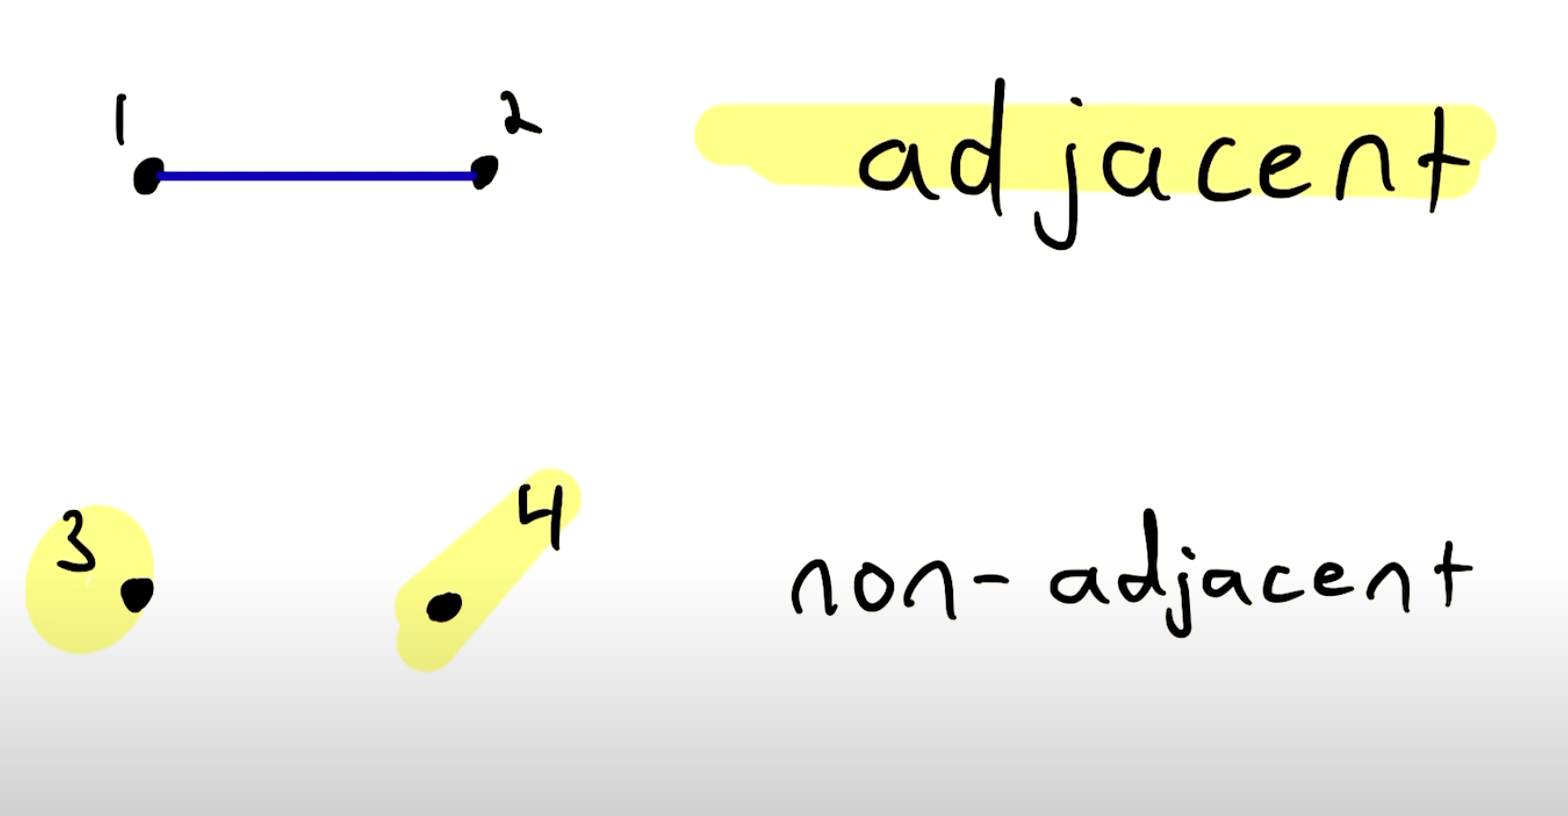 1 2 adjacent
3 4 non-adjacent